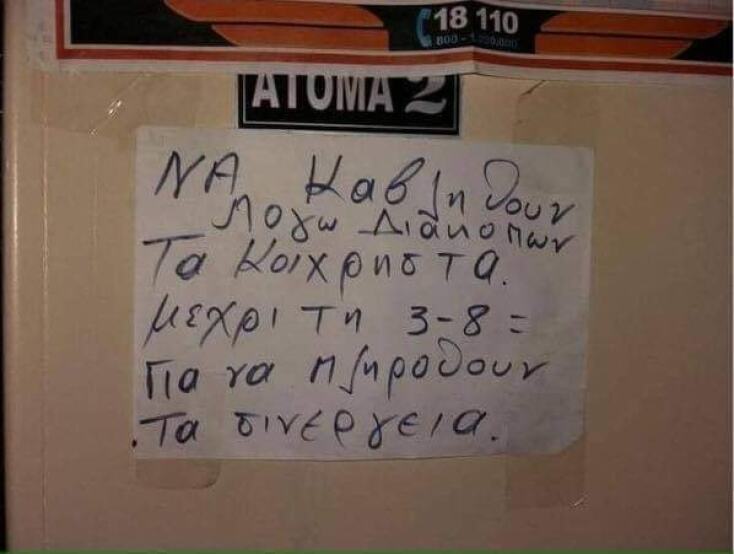 18 110
800 - 1.000.000
ΑΤΟΜΑ 2
ΝΑ Καβληθουν
Λογω Διακοπων
Τα Κοιχρηστα.
μεχρι τη 3-8 =
Για να πληροθουν
.Τα σινεργεια.